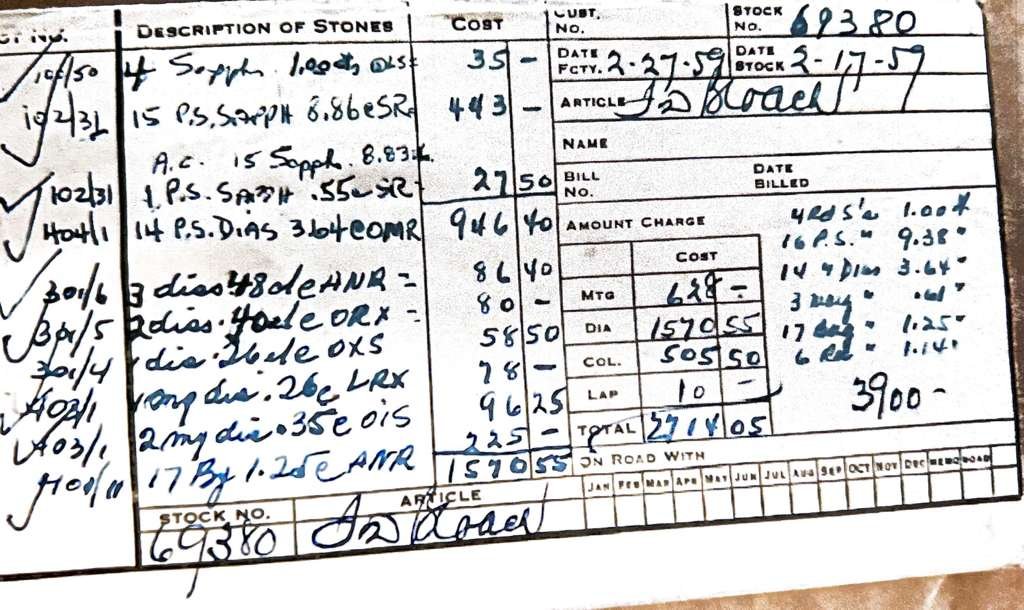 DESCRIPTION OF STONES COST CUST. NO. STOCK NO. 69380
4 Sapph. 1.00 35 -
DATE FCTY. 2-27-59 DATE STOCK 2-17-59
102/31 15 P.S. SAPPH 8.86c SR 443 -
ARTICLE
A.C. 15 Sapph. 8.83
NAME
102/31 1 P.S. SAPPH .55c SR- 27 50
BILL NO. DATE BILLED
404/1 14 P.S. DIAS 3.64c OMR 946 40
AMOUNT CHARGE
301/6 3 dias .48 ANR = 86 40
301/5 2 dias .40 ORX - 80 -
301/4 1 dia .26 OXS 58 50
403/1 .26c LRX 78 -
403/1 2 mq dia .35c OIS 96 25
17 Bg 1.25c ANR 225 -
1570 55
COST
MTG 628 -
DIA 1570 55
COL. 505 50
LAP 10 -
TOTAL 2714 05
4 Rd S's 1.00
16 P.S. " 9.38 "
14 " Dias 3.64 "
3 "
17 Bag " 1.25 "
6 Rd " 1.14 "
3900 -
ON ROAD WITH
JAN FEB MAR APR MAY JUN JUL AUG SEP OCT NOV DEC MEMO ROAD
STOCK NO. ARTICLE
69380